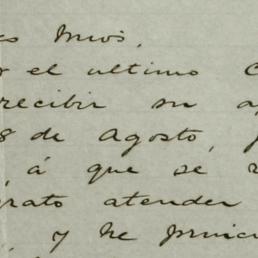 os mios,
r el ultimo C
recibir su a
8 de Agosto, f
, á que se r
grato atender
, y he princi